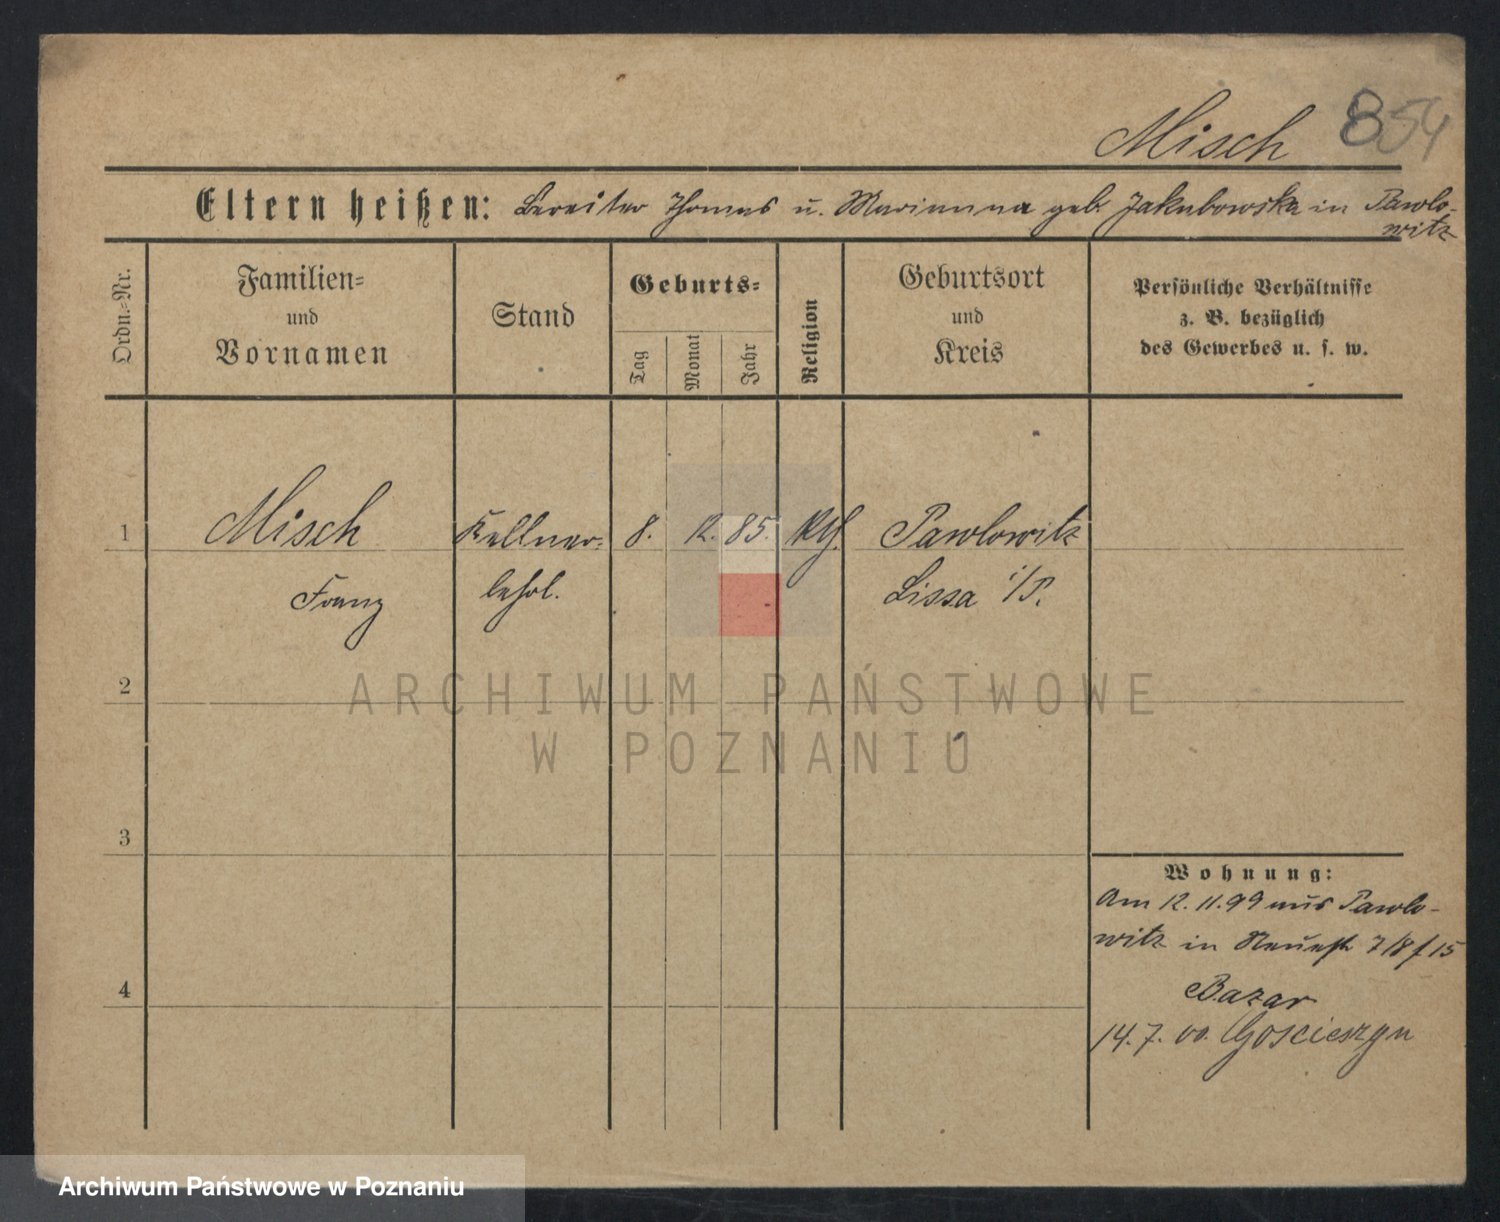 Misch 854
Eltern heißen: Bereiter Thomas u. Marianna geb. Jakubowska in Pawlo-
witz
Ordn.-Nr.
Familien-
und
Vornamen
Stand
Geburts-
Tag
Monat
Jahr
Religion
Geburtsort
und
Kreis
Persönliche Verhältnisse
z. B. bezüglich
des Gewerbes u. s. w.
1 Misch Kellner- 8. 12. 85. kth. Pawlowitz
Franz lehrl. Lissa i/P.
2
3
4
Wohnung:
Am 12. 11. 99 aus Pawlo-
witz in 7/8 15
Bazar
14. 7. 00. Goscieszyn
ARCHIWUM PAŃSTWOWE
W POZNANIU
Archiwum Państwowe w Poznaniu